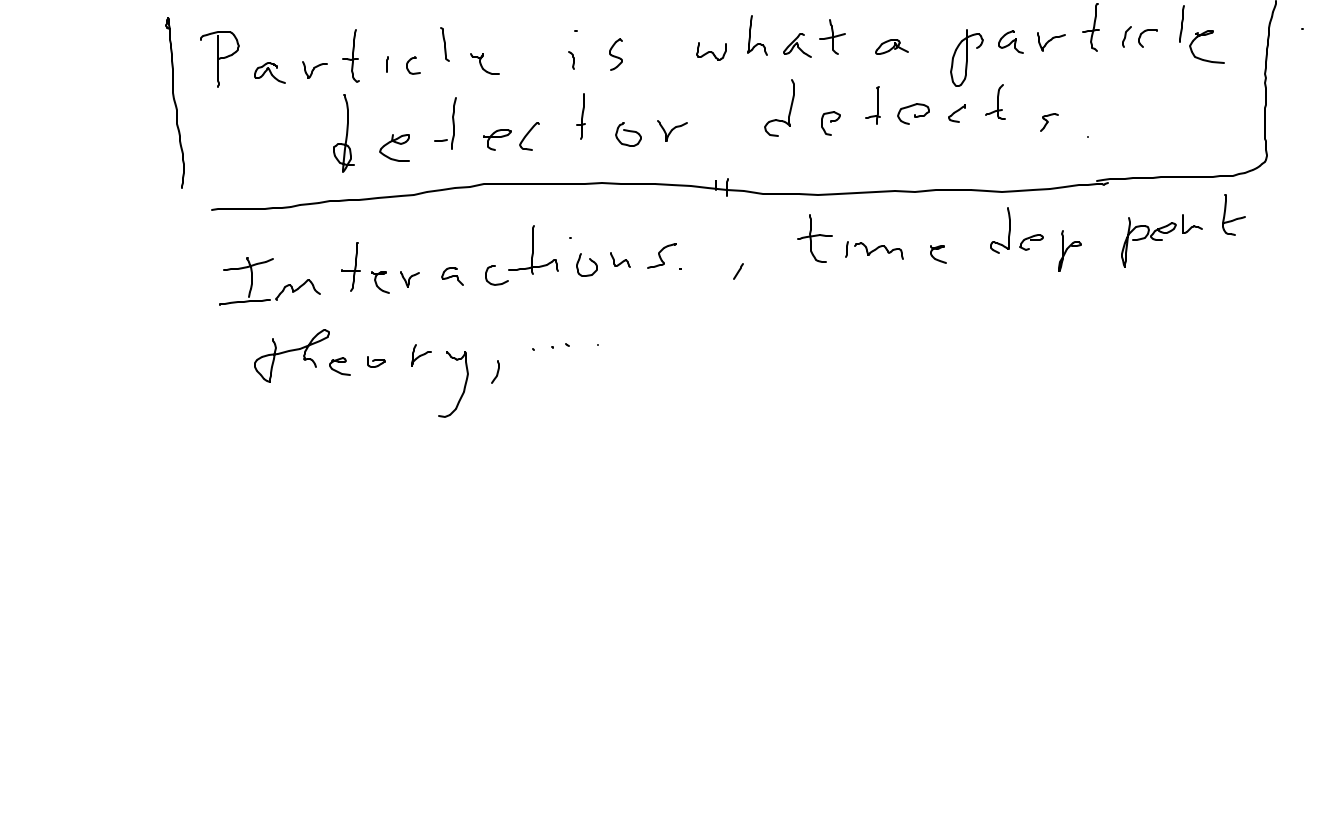 Particle is what a particle
detector detects.
Interactions., time dep pent
theory, ....